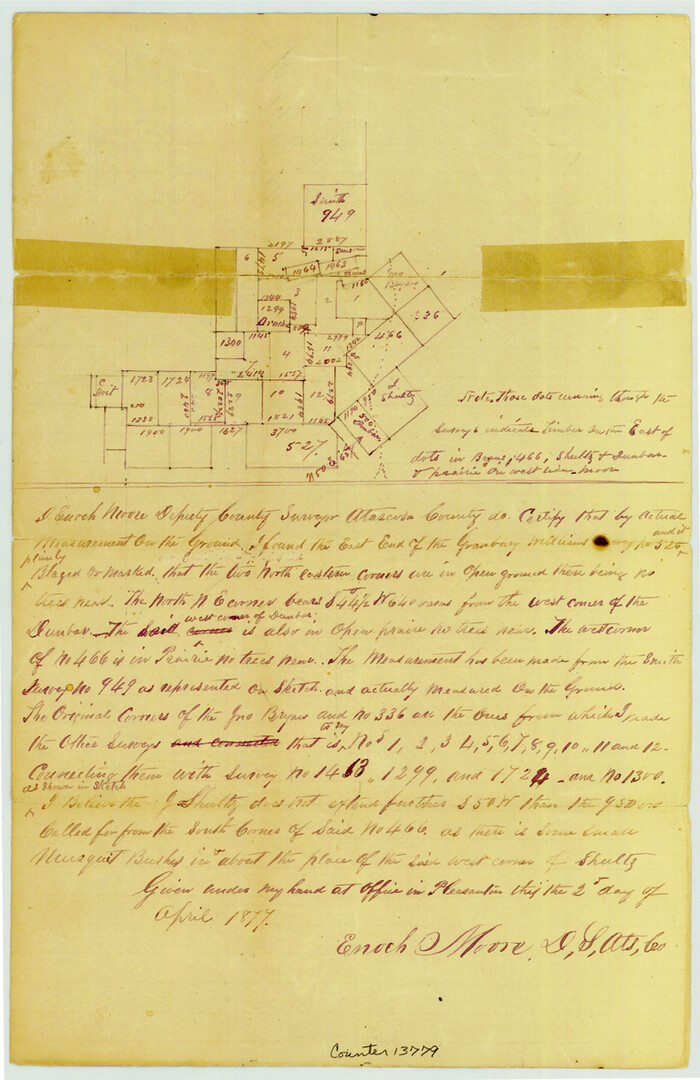 Smith
949
2197
2887
6
5
1964
1963
3
2
1
1150
Jno
Bryans
336
1344
1299
466
1300
1145
4
11
2002
7
2414
1557
C
Post
1723
1724
8
10
12
J
Shultz
1900
1900
1627
3700
1021
527
Note, Those dots running through the
Surveys indicate Timber on the East of
dots in Bryans, 466, Shultz & Dunbar
& prairie on west side. Moore
I Enoch Moore Deputy County Surveyor Atascosa County do Certify that by actual
Measurement On the Ground, I found the East End of the Granbury Williams Survey No 526, and it
plainly
Blazed or Marked. that the two North eastern corners are in Open ground there being no
trees near. The North N E corner bears S 44½ W 640 varas from the west corner of the
Dunbar. The west corner of Dunbar is also in Open prairie no trees near. The west corner
of No 466 is in Prairie no trees near. The Measurement has been made from the Smith
Survey No 949 as represented On Sketch and actually Measured On the Ground.
The Original Corners of the Jno Bryans and No 336 are the Ones from which I made
the Other Surveys and connected that is to say, Nos 1, 2, 3 4, 5, 6, 7, 8, 9, 10, 11 and 12
Connecting them with Survey No 1463, 1299, and 1724 and No 1300.
as Shown in Sketch
I Believe the J Shultz does not extend further S 50 W than the 950 vrs
Called for from the South Corner of Said No 466. as there is some small
Musquit Bushes in about the place of the west corner of Shultz
Given under my hand at office in Pleasanton this the 2 day of
April 1877.
Enoch Moore, D, S, Ats, Co
Counter 13779